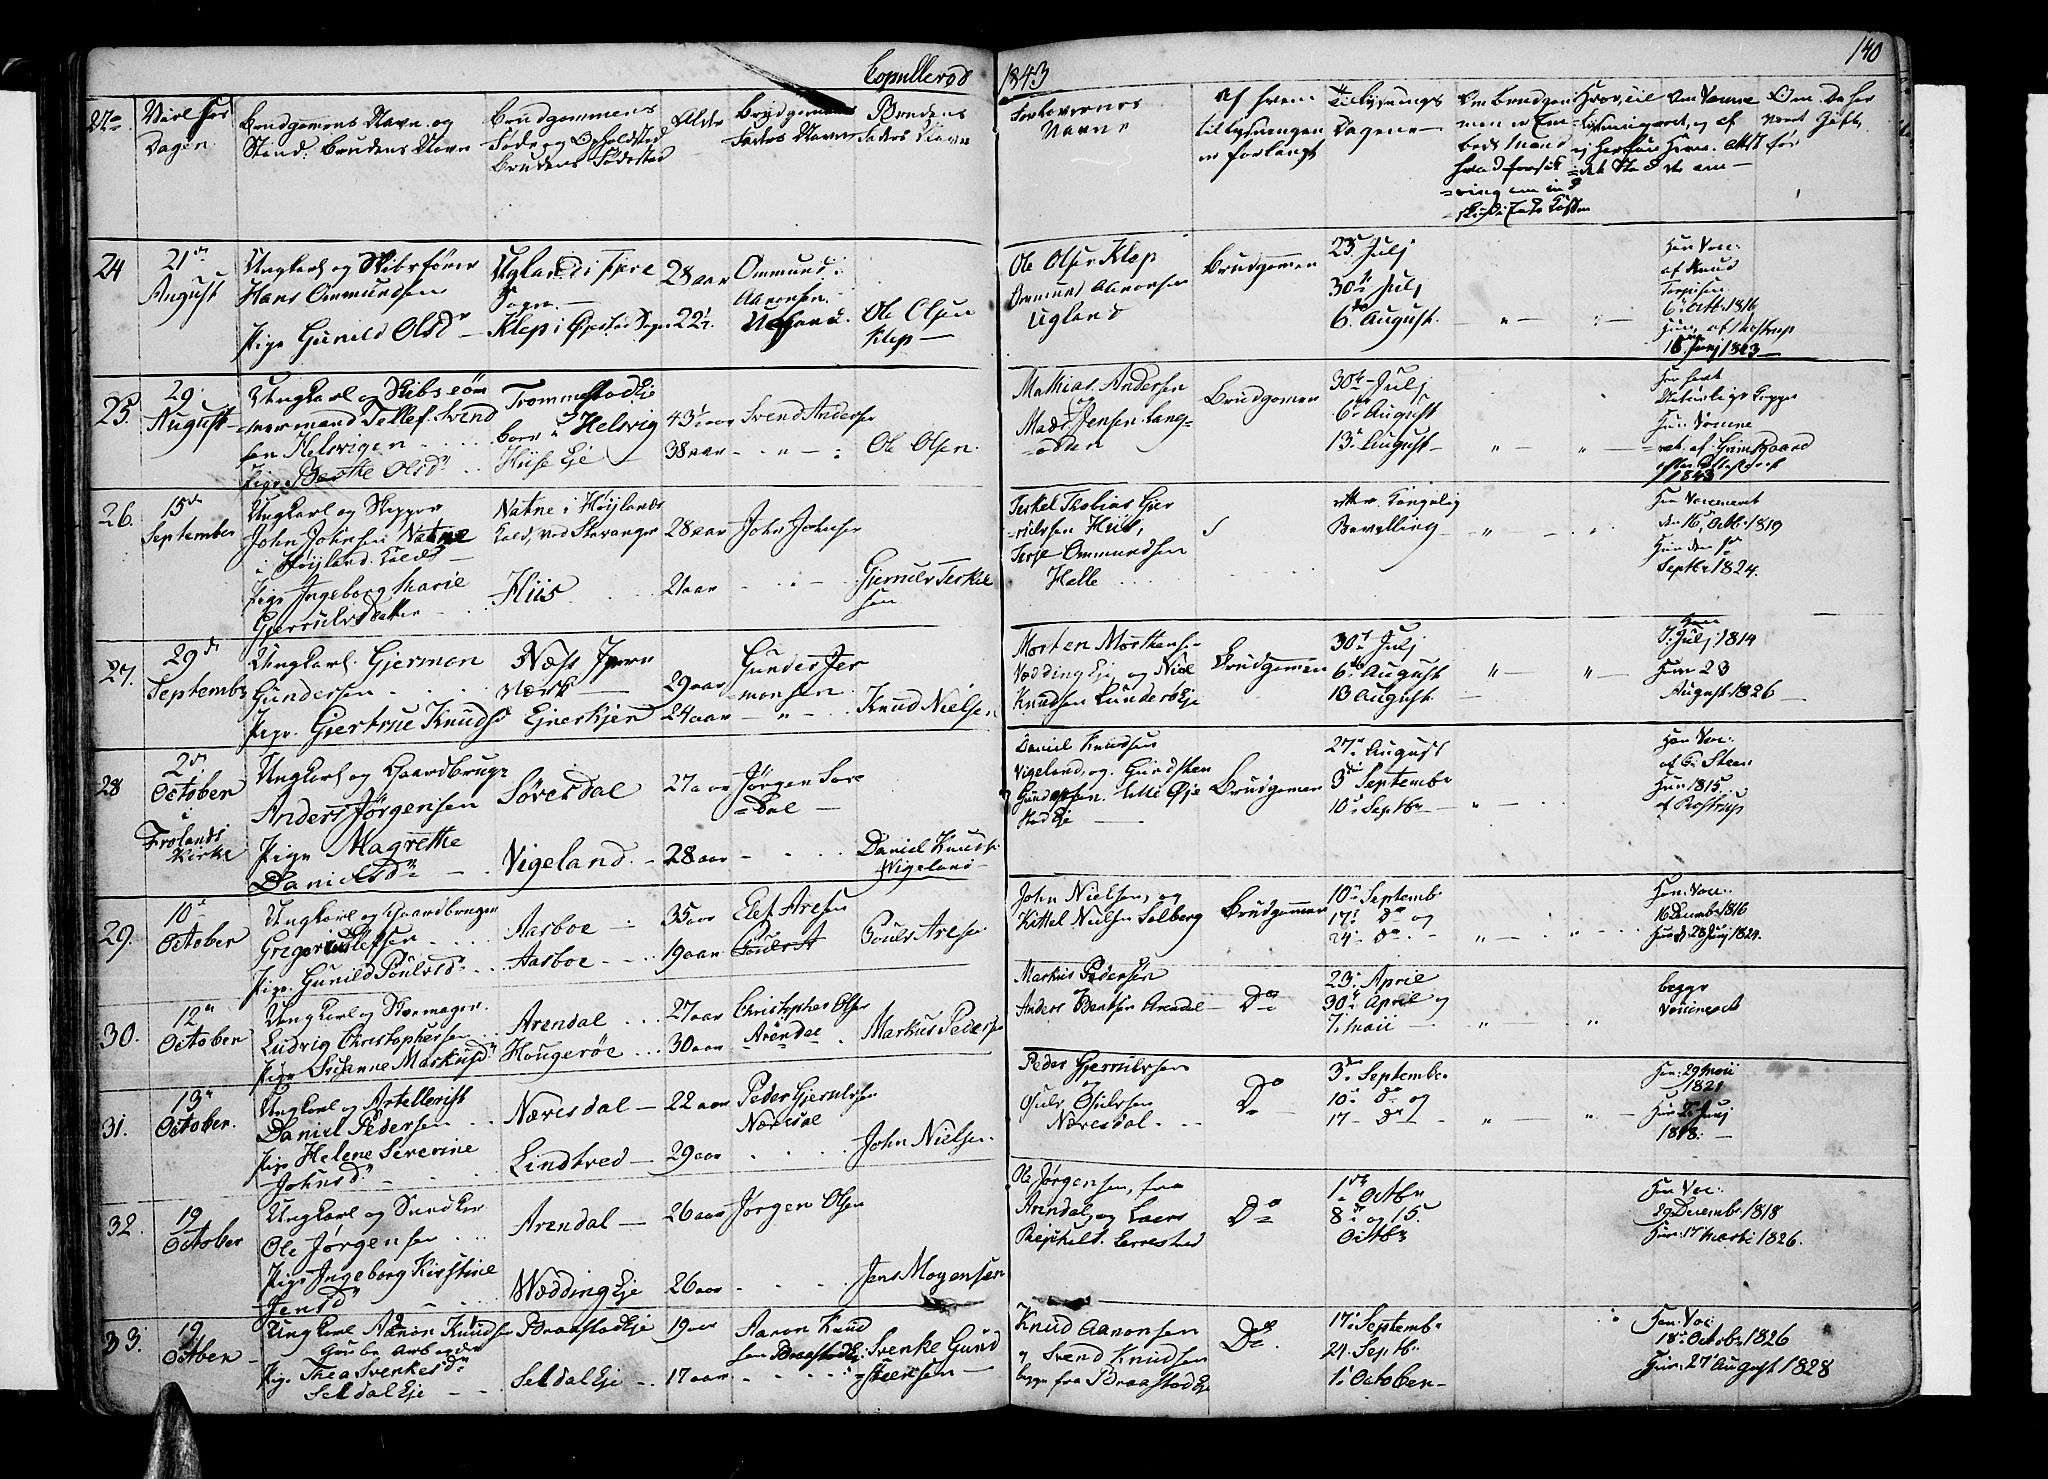 140
Copullered 1843
No Viel ses Dagen
Brudgomens Navn og Stand: Brudens Navn
Brudgommens Føde og Opholdsted Brudens Fødested
Alder
Brudgomens Faders Navn
Brudens Faders Navn
Forlovernes Navne
Af hvem tillysningen er forlangt
Tillysnings Dagene
24
21de August
Ungkarl og Skibsfører
Hans Ommundsen
Pige Gunild Olsd
Ugland i Fjære Sogn
Klep i Øjestad Sogn
28 aar
22½
Ommund Aaronsen Ugland
Ole Olsen Klep
Ole Olsen Klep
Ommund Aaronsen Ugland
Brudgomen
23 Julj
30te Julj
6te August
Han Vac:
af Knud
6 Octt 1816
Hun af Rostrup
1823
25.
29 August
Ungkarl og Skibstøm
mermand Tellef Svend
sen Helvigen
Pige Berthe Olsd
Trommestad Eje
boer i Helsvig
Hiise Eje
43½ aar
38 aar
Svend Andersen
Ole Olsen
Mathias Andersen
Mads Jensen Lang-
odden
Brudgomen
30te Julj
6te August
13de August
1843
26.
15de September
Ungkarl og Skipper
John Johnsen Natne
i Høyland Kald
Pige Ingeborg Marie
Gjerrulvsdatter
Natne i Høylands
Kald, ved Stavanger
Hiis
28 aar
21 aar
John Johnsen
Gjerrulv Terkel
sen
Terkel Thobias Gjer
rulvsen Hiis,
Terje Ommundsen
Helle
efter Kongelig
Bevilling
Han Vaccineret
den 16 Octbr 1819
Hun den
Septbr 1824.
27.
29de Septembr
Ungkarl Gjermon
Gundersen
Pige Gjertrue Knudsd
Næss Jern
værk
Ejnerkjer
29 aar
24 aar
Gunder Jer
monsen
Knud Nielsen
Morten Morthens
Vedding Eje og Niel
Knudsen Lunderb Eje
Brudgomen
30te Julj
6te August
13 August
7 Julj 1814
Hun 23
August 1826
28
2de October
i Frolands Kirke
Ungkarl og Gaardbruger
Anders Jørgensen
Pige Magrethe
Danielsd
Søresdal
Vigeland
27 aar
28 aar
Jørgen Søre
Dal
Daniel Knuds
Vigeland
Daniel Knudsen
Vigeland, og Gundsten
Gundersen Lille Øje
stad Eje
Brudgomen
27 August
3de Septembr
10de Septbr
Han Vac:
af C: Steen
Hun 1815
af Rostrup
29.
10de October
Ungkarl og Gaardbruger
Gregorius Elefsen
Pige Gunild Poulsd
Aasboe
Aasboe
35 aar
19 aar
Elef Aresen
Poul Aresen
John Nielsen, og
Kittel Nielsen Solberg
Brudgomen
10de Septemb
17de Do og
24 Do
Han Vac:
16 Decembr 1816
Hun d. 28 Junj 1824.
30.
12te October
Ungkarl og Skomager
Ludvig Christophersen
Pige Susanne Markusd
Arendal
Hougerøe
27 aar
30 aar
Christopher Olsen
Arendal
Markus Peders
Markus Pedersen
Anders Bentsen Arendal
Do
23 April
30te April og
7 Maii
begge
Vaccineret
31.
13de October.
Ungkarl og Artellerist
Daniel Pedersen
Pige Helene Severine
Johnsd
Næresdal
Lindtved
22 aar
29 aar
Peder Gjerulvsen
Næresdal
John Nielsen
Peder Gjerrulvsen
og
Osulv Osulvsen
Næresdal
Do
3de Septembr
10de do og
17 do
Han: 29 Maii
1821
1818:
32.
19 October
Ungkarl og Snedker
Ole Jørgensen
Pige Ingeborg Kirstine
Jensd
Arendal
Vedding Eje
26 aar
26 aar
Jørgen Olsen
Jens Mogensen
Ole Jørgensen, fra
Arendal, og Laers
Lerrestved
Do
1ste Octbr
8de og 15
Octbr
Han Vac:
29 Decembr 1818
Hun: 17 Marti 1826.
33.
19 Octber
Ungkarl Aaron Knudsen
Grube Arbeider
Pige Thea Svenkesd
Seldal Eje
Braastad Eje
Seldal Eje
19 aar
17 aar
Aaron Knud
sen Braastad Ej
Svenke Gund
steensen
Knud Aaronsen
og Svend Knudsen
begge fra Braastad Eje
Do
17de Septembr
24 Septbr
1de October
Han Vac:
18de Octobr 1826
Hun: 27 August 1828